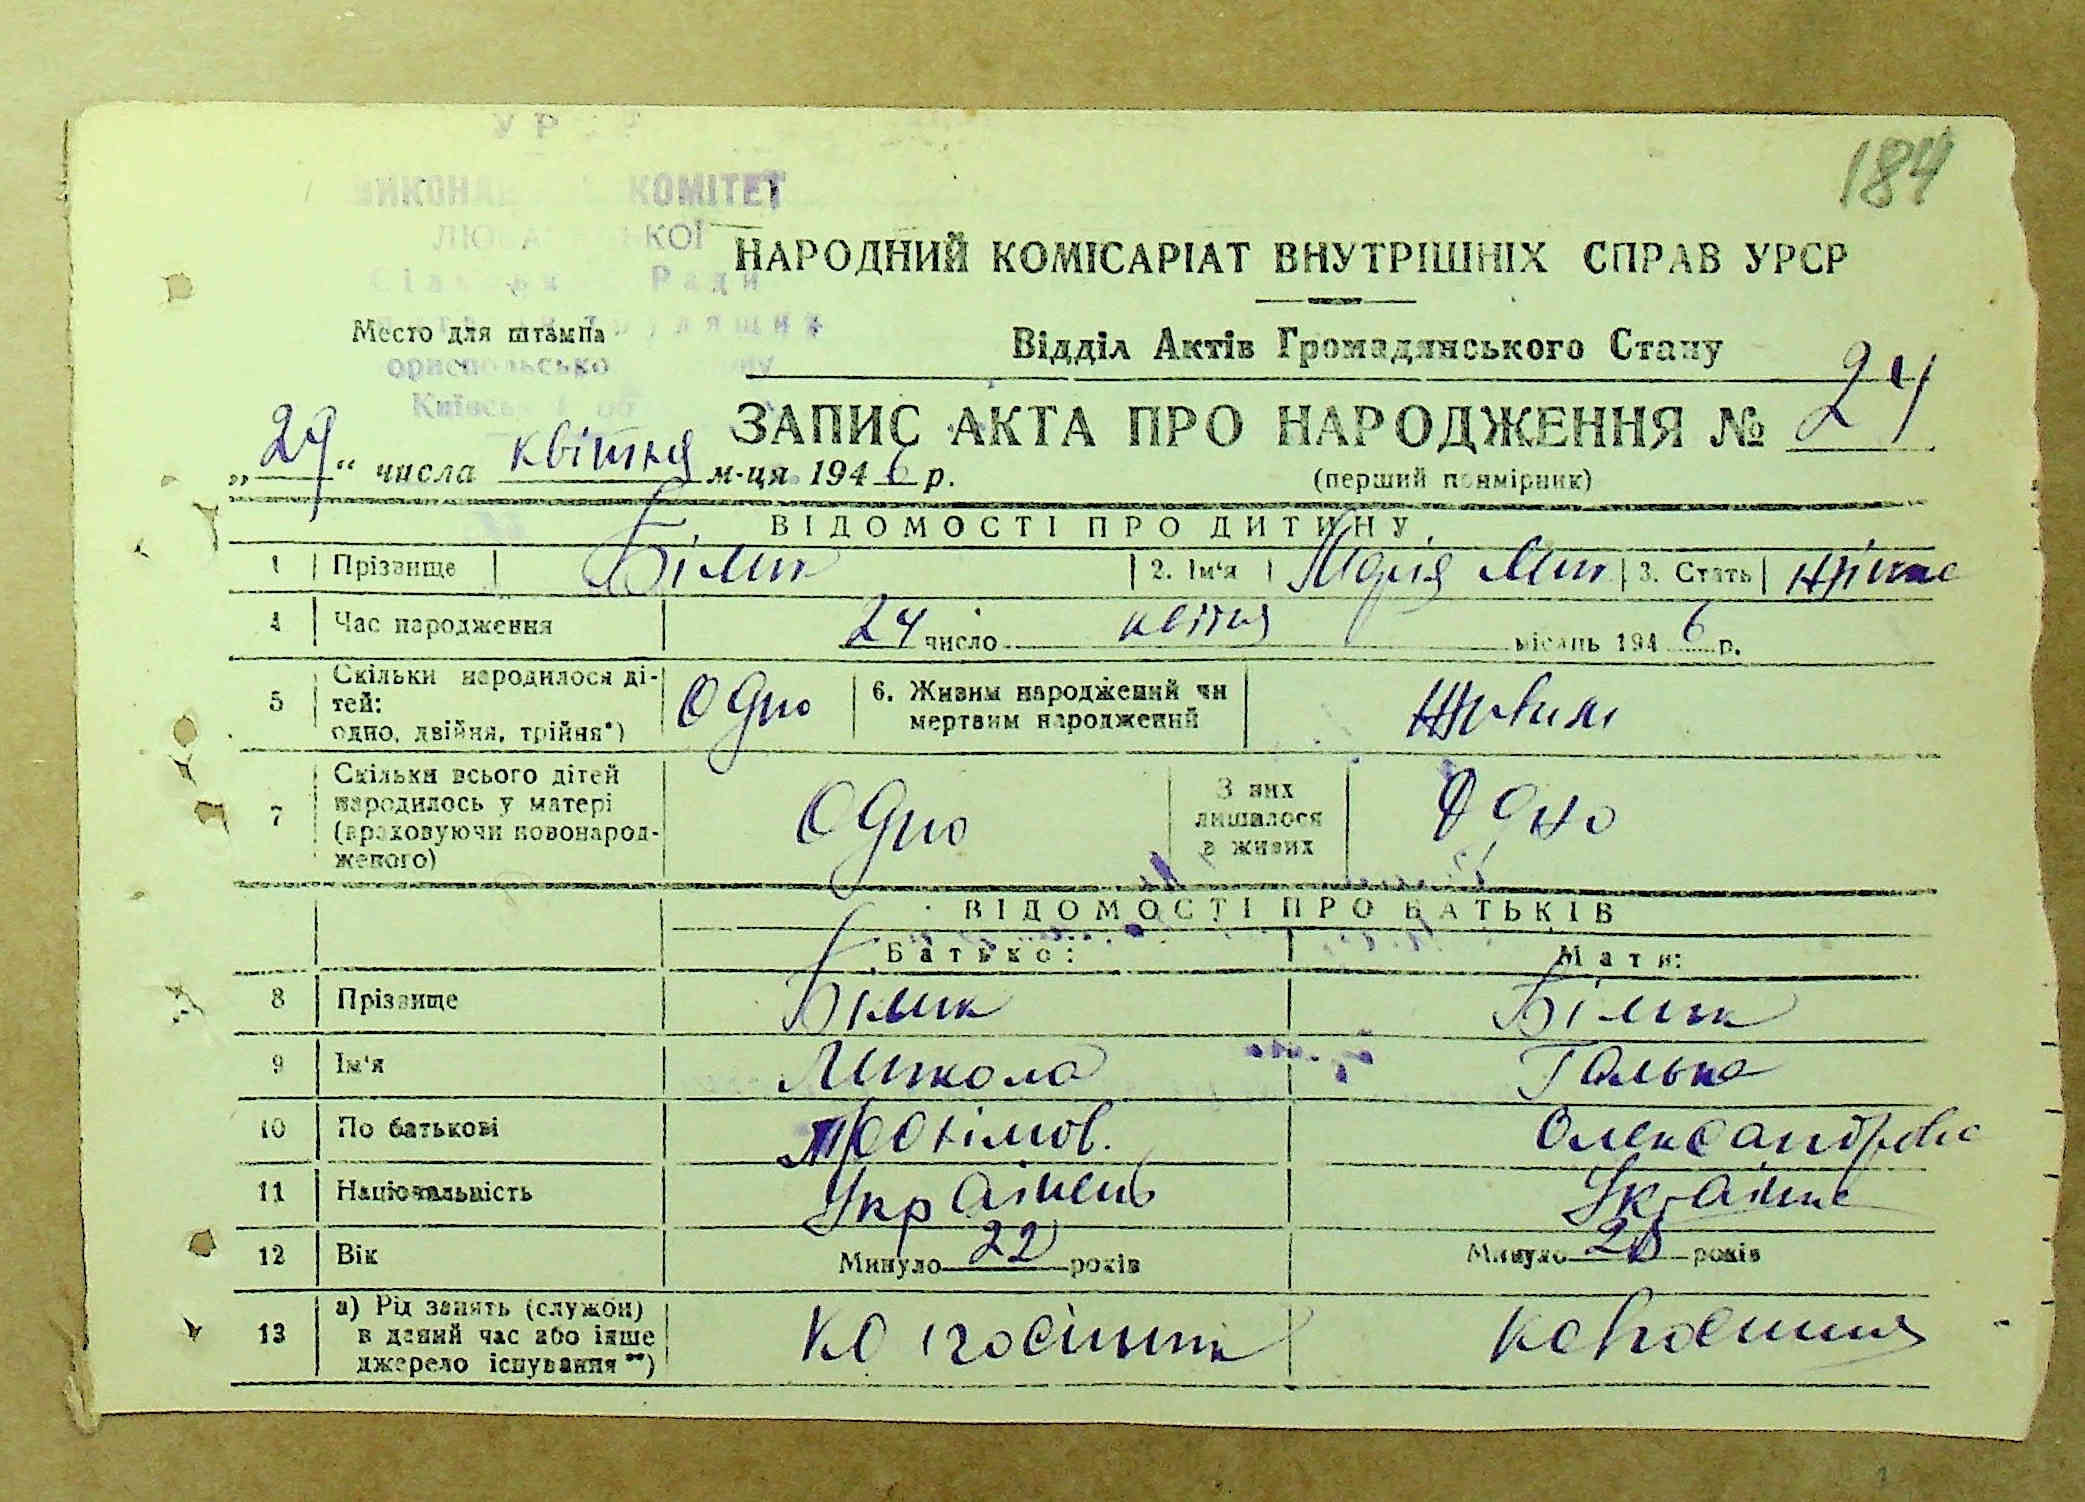 184
КОМІТЕТ
НАРОДНИЙ КОМІСАРІАТ ВНУТРІШНІХ СПРАВ УРСР
Место для штампа
Відділ Актів Громадянського Стану
ЗАПИС АКТА ПРО НАРОДЖЕННЯ № 24
„29“ числа квітня м-ця 1946 р.
(перший примірник)
ВІДОМОСТІ ПРО ДИТИНУ
1 Прізвище Білик 2. Ім'я Марія Мик 3. Стать жіноч
4 Час народження 24 число квітня місяць 1946 р.
5 Скільки народилося ді-
тей:
одно, двійня, трійня*) Одно 6. Живим народжений чи
мертвим народжений Живим
7 Скільки всього дітей
народилось у матері
(враховуючи новонарод-
женого) Одно З них
лишалося
в живих Одно
ВІДОМОСТІ ПРО БАТЬКІВ
Батько: Мати:
8 Прізвище Білик Білик
9 Ім'я Микола Галька
10 По батькові Олександровна
11 Національність Українець Українка
12 Вік Минуло 22 років Минуло 20 років
13 а) Рід занять (служби)
в даний час або інше
джерело існування**) Колгоспник